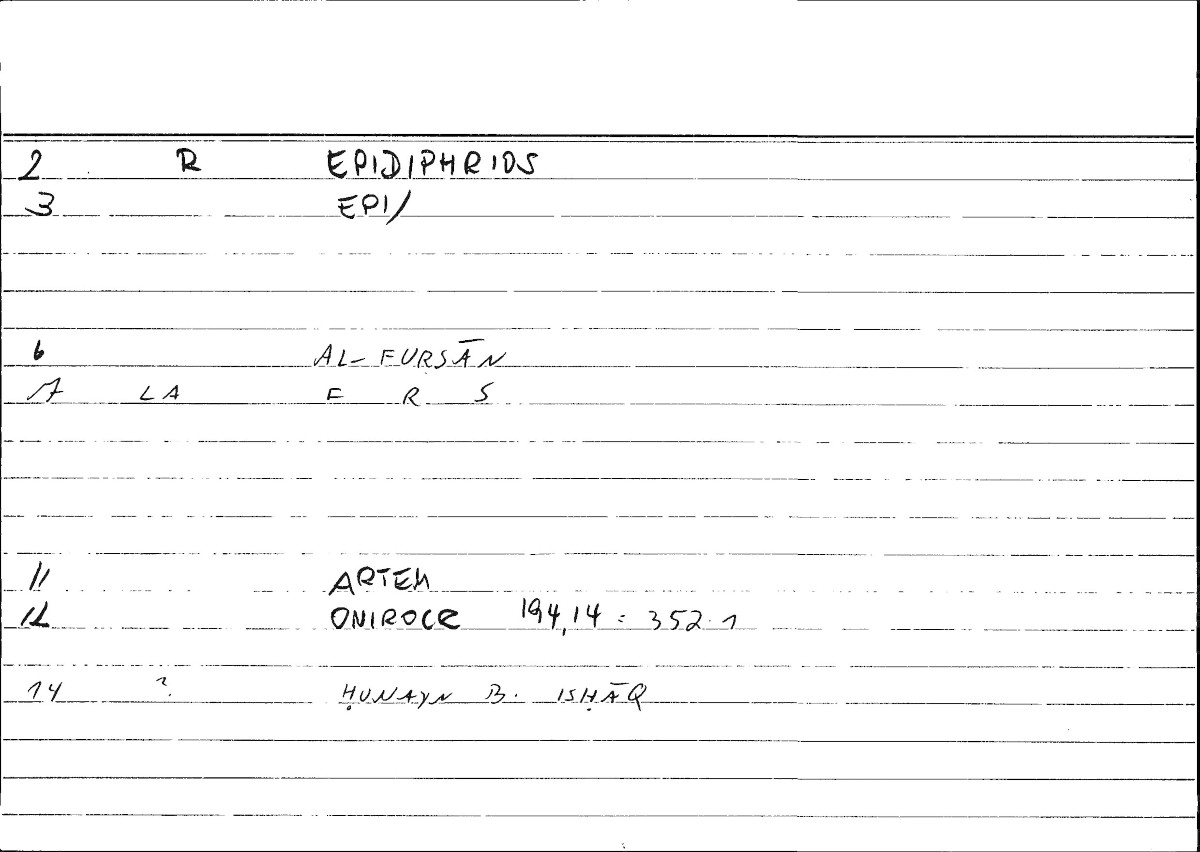 2 R EPIDIPHRIOS
3 EPI/
6 AL-FURSĀN
7 LA F R S
11 ARTEM
12 ONIROCR 194,14 = 352.1
14 ? ḤUNAYN B. ISḤĀQ